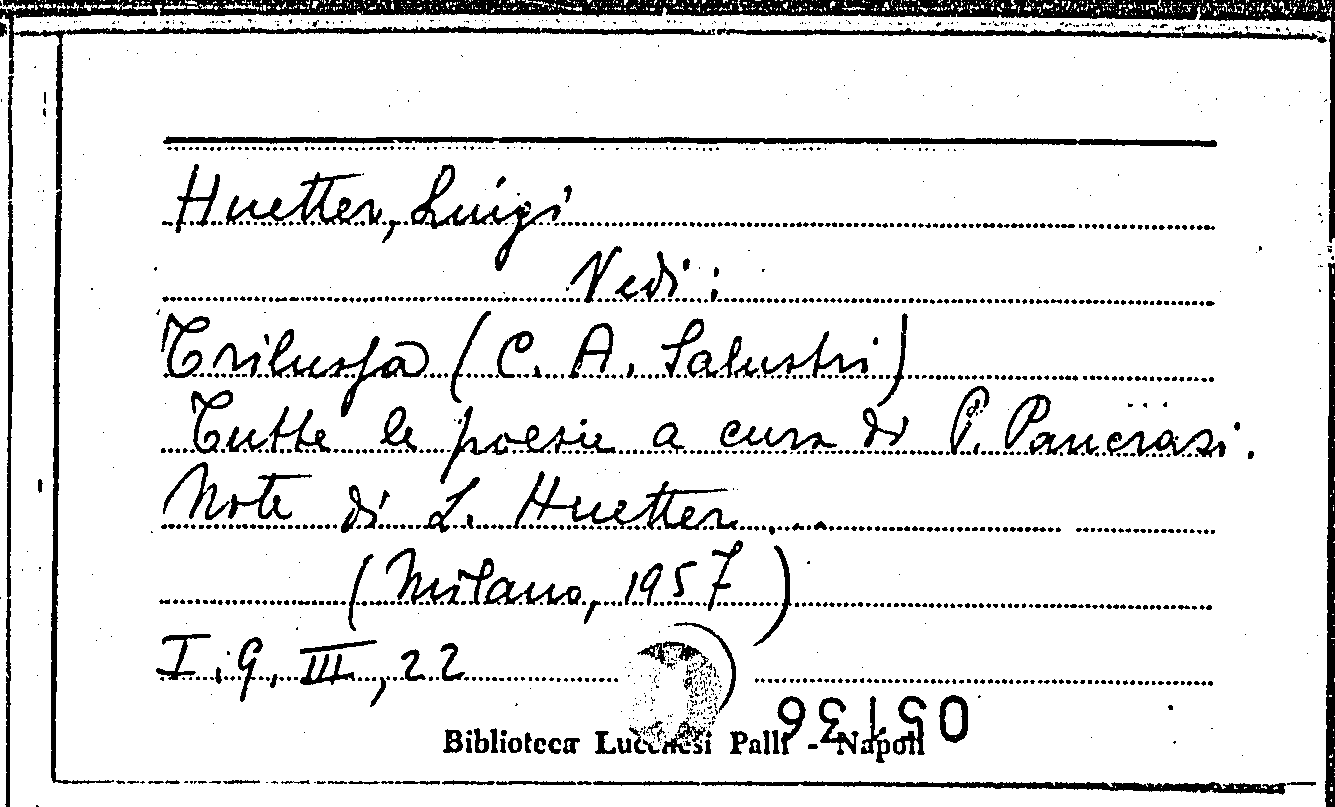 Huetter, Luigi
Vedi:
Trilussa (C. A. Salustri)
Tutte le poesie a cura di P. Pancrazi.
Note di L. Huetter...
(Milano, 1957)
I. 9. III, 22
05136
Biblioteca Lucchesi Palli - Napoli